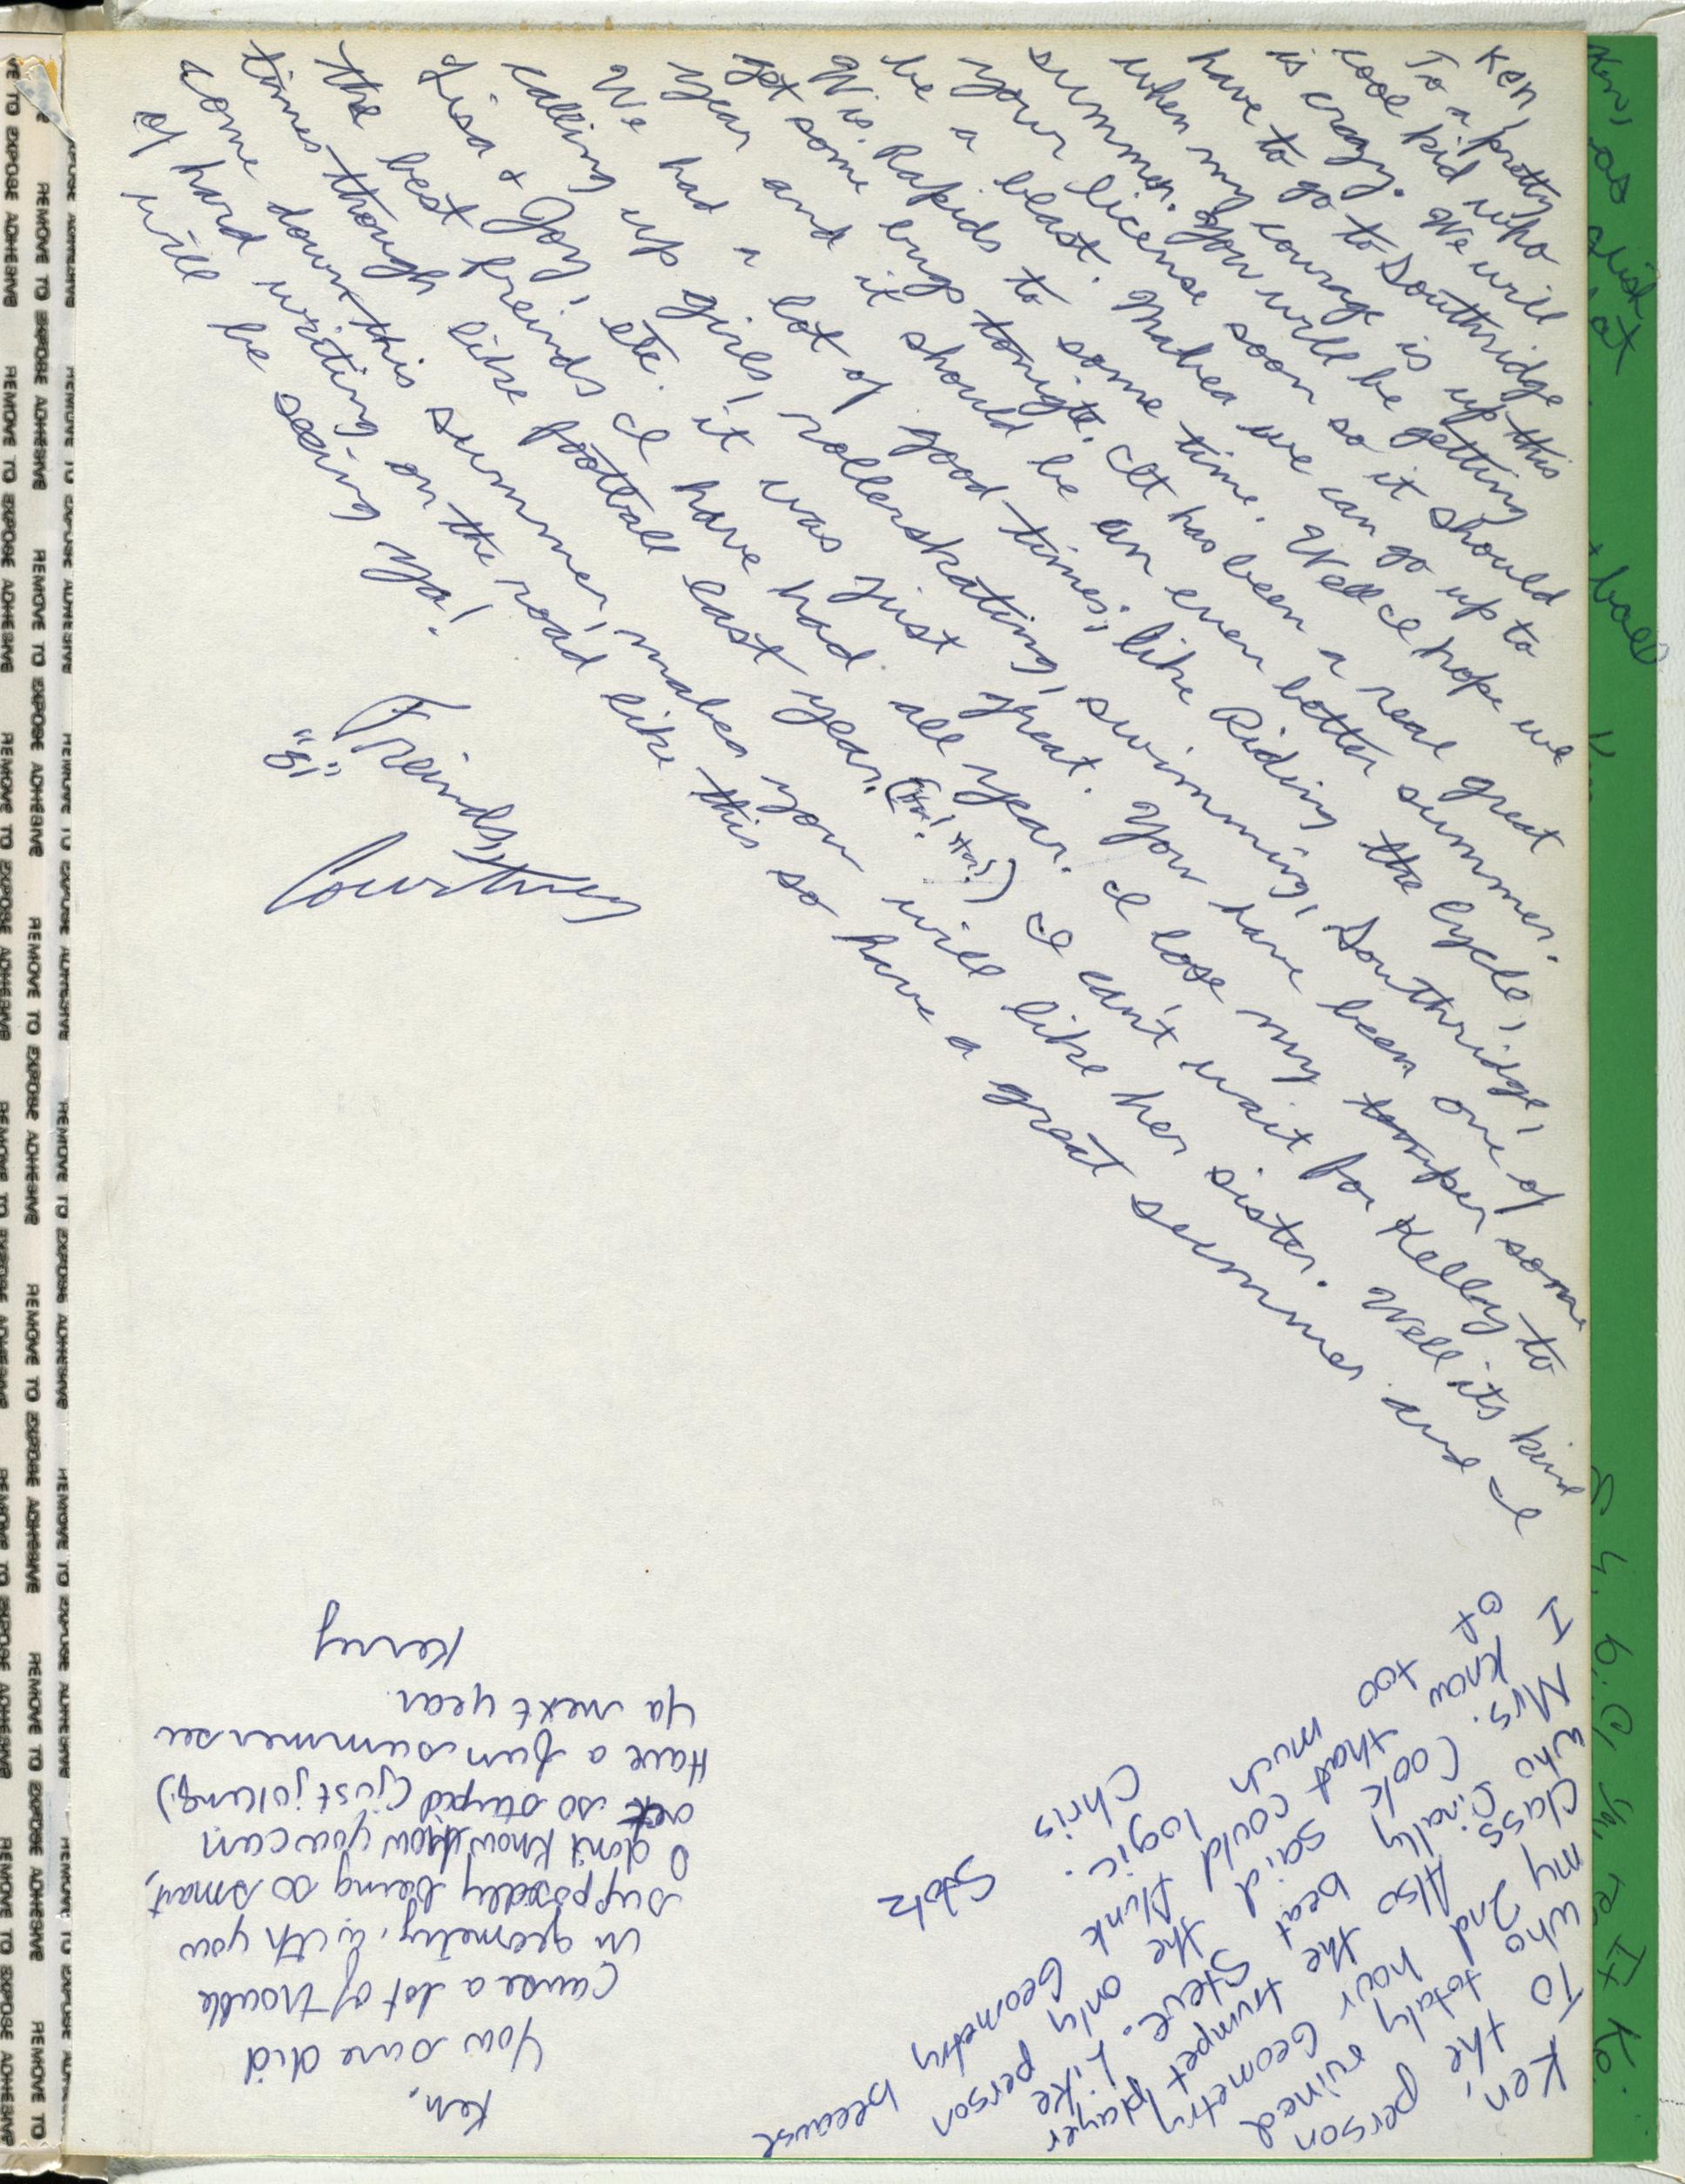 Ken,
To a pretty
cool kid who
is crazy. We will
have to go to Southridge
when my courage is up this
summer. You will be getting
your license soon so it should
be a blast. Mabea we can go up to
Wis. Rapids to some time. Well I hope we
get some bugs tonigte. It has been a real great
year and it should be an even better summer.
We had a lot of good times; like Riding the Cycle,
calling up girls, rollerskating, swimming, Southridge,
Lisa + Joy, etc. it was just great. You have been one of
the best freinds I have had all year. I lose my temper some
times though like football last year. (Ha! Ha!) I can't wait for Kelley to
come down this summer, mabea you will like her sister. Well its kind
of hard writing on the road like this so have a great summer and I
will be seeing ya!
Freinds,
Courtney
"81"
Ken,
To the person
who totaly ruined
my 2nd hour Geometry
class. Also the trumpet player
who finally beat Steve. Like
Mrs. Cook said the only person
I know that could flunk Geometry because
of too much logic.
Chris Stolz
Ken,
You sure did
cause a lot of trouble
in geometry. With you
supposedly being so smart,
I don't know how you can
act so stupid (just joking.)
Have a fun summer see
ya next year.
Kerry
REMOVE TO EXPOSE ADHESIVE REMOVE TO EXPOSE ADHESIVE REMOVE TO EXPOSE ADHESIVE
REMOVE TO EXPOSE ADHESIVE REMOVE TO EXPOSE ADHESIVE REMOVE TO EXPOSE ADHESIVE
REMOVE TO EXPOSE ADHESIVE REMOVE TO EXPOSE ADHESIVE REMOVE TO EXPOSE ADHESIVE